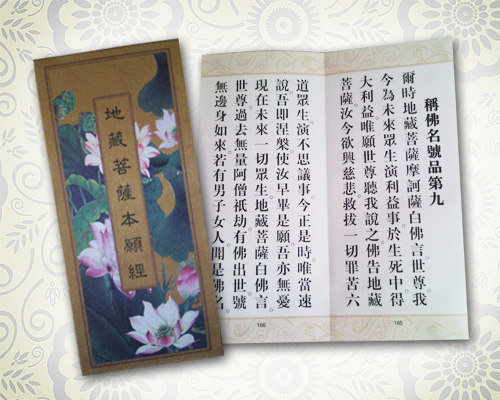 地藏菩薩本願經
稱佛名號品第九
爾時地藏菩薩摩訶薩白佛言。世尊。我
今為未來眾生演利益事。於生死中。得
大利益。唯願世尊聽我說之。佛告地藏
菩薩。汝今欲興慈悲。救拔一切罪苦六
165
道眾生。演不思議事。今正是時。唯當速
說。吾即涅槃。使汝早畢是願。吾亦無憂
現在未來一切眾生。地藏菩薩白佛言。
世尊。過去無量阿僧祇劫。有佛出世。號
無邊身如來。若有男子女人。聞是佛名。
166